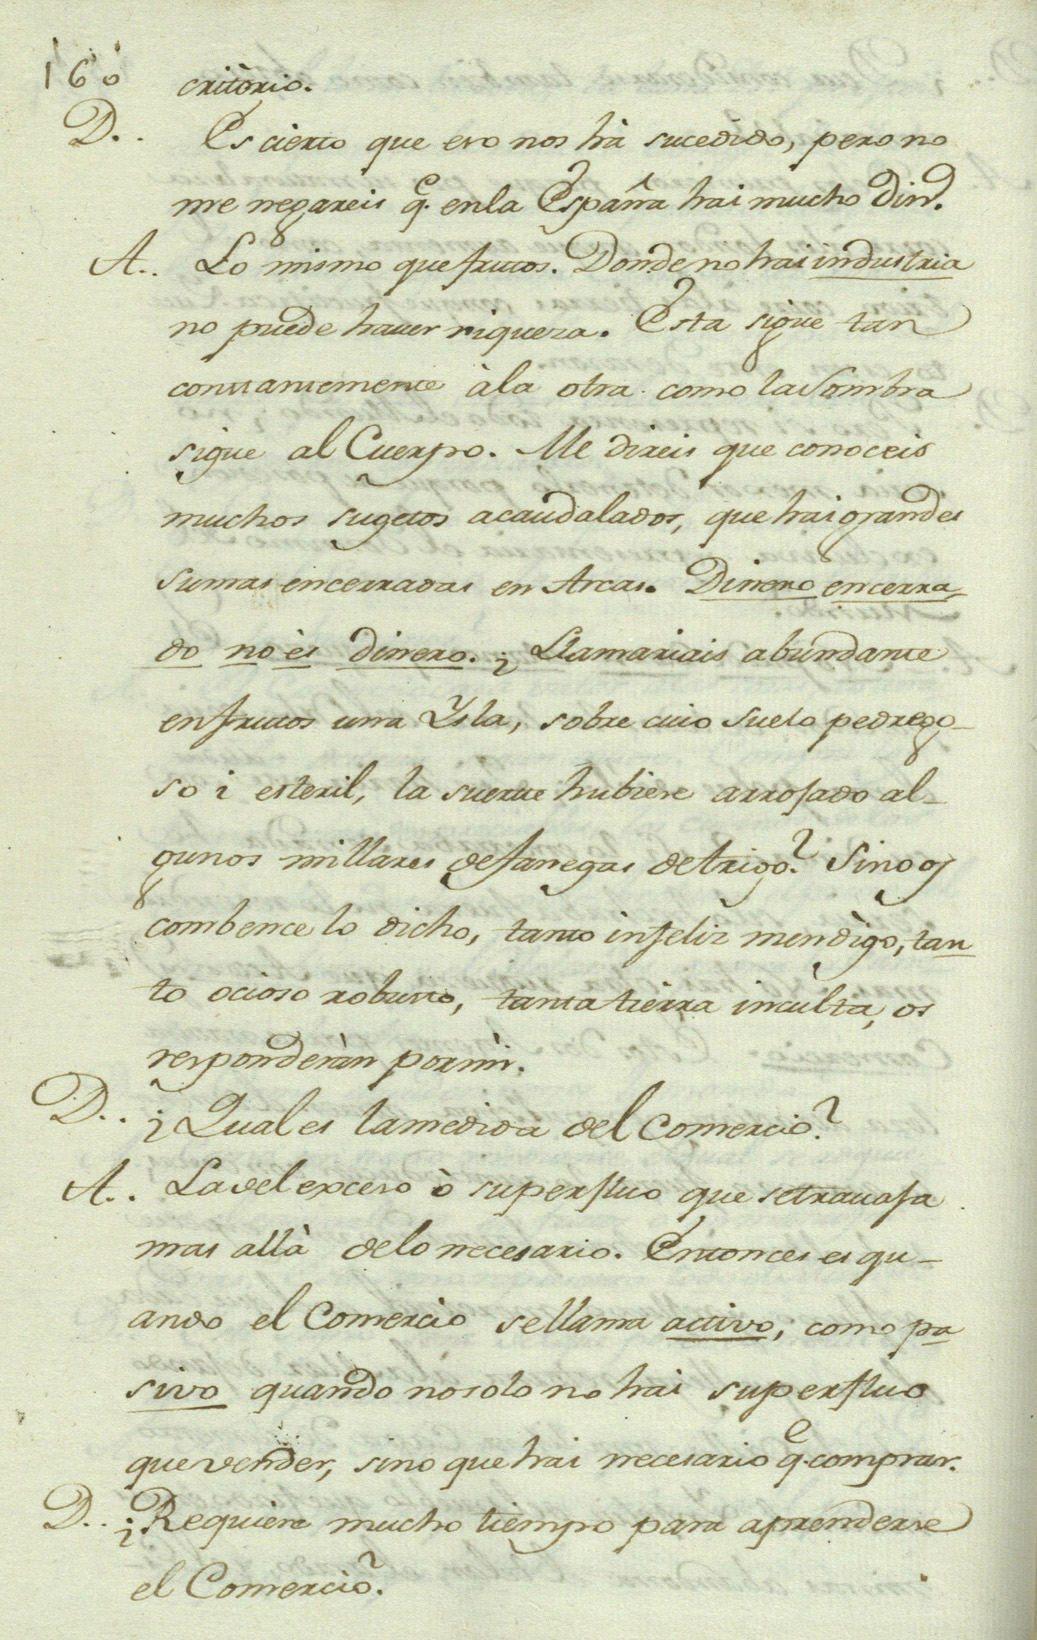 160 critòrio.
D.. Es cièrto que eso nos hà sucedido, pero no
me negareis q.e en la España hai mucho din.o
A.. Lo mismo que frutos. Donde no hai industria
no puede haver riqueza. Esta sigue tan
constantemente àla otra como la Sombra
sigue al Cuerpo. Me direis que conoceis
muchos sugetos acaudalados, que hai grandes
sumas encerradas en Arcas. Dinero encerra-
do no ès dinero. ¿ Llamariais abundante
en frutos una Ysla, sobre cuio suelo pedrego-
so i esteril, la suerte hubiese arrojado al-
gunos millares de fanegas de trigo? Sino os
combence lo dicho, tanto infeliz mendìgo, tan
to ocioso robusto, tanta tièrra incùlta, os
responderàn por mì.
D.. ¿ Qual es la medida del Comercio?
A.. La del exceso ò superfluo que se travaja
mas allà de lo necesario. Entonces es qu-
ando el Comercio se llama activo, como pa
sivo quando no solo no hai superfluo
que vender, sino que hai necesario q.e comprar.
D.. ¿Requiere mucho tiempo para aprenderse
el Comercio?